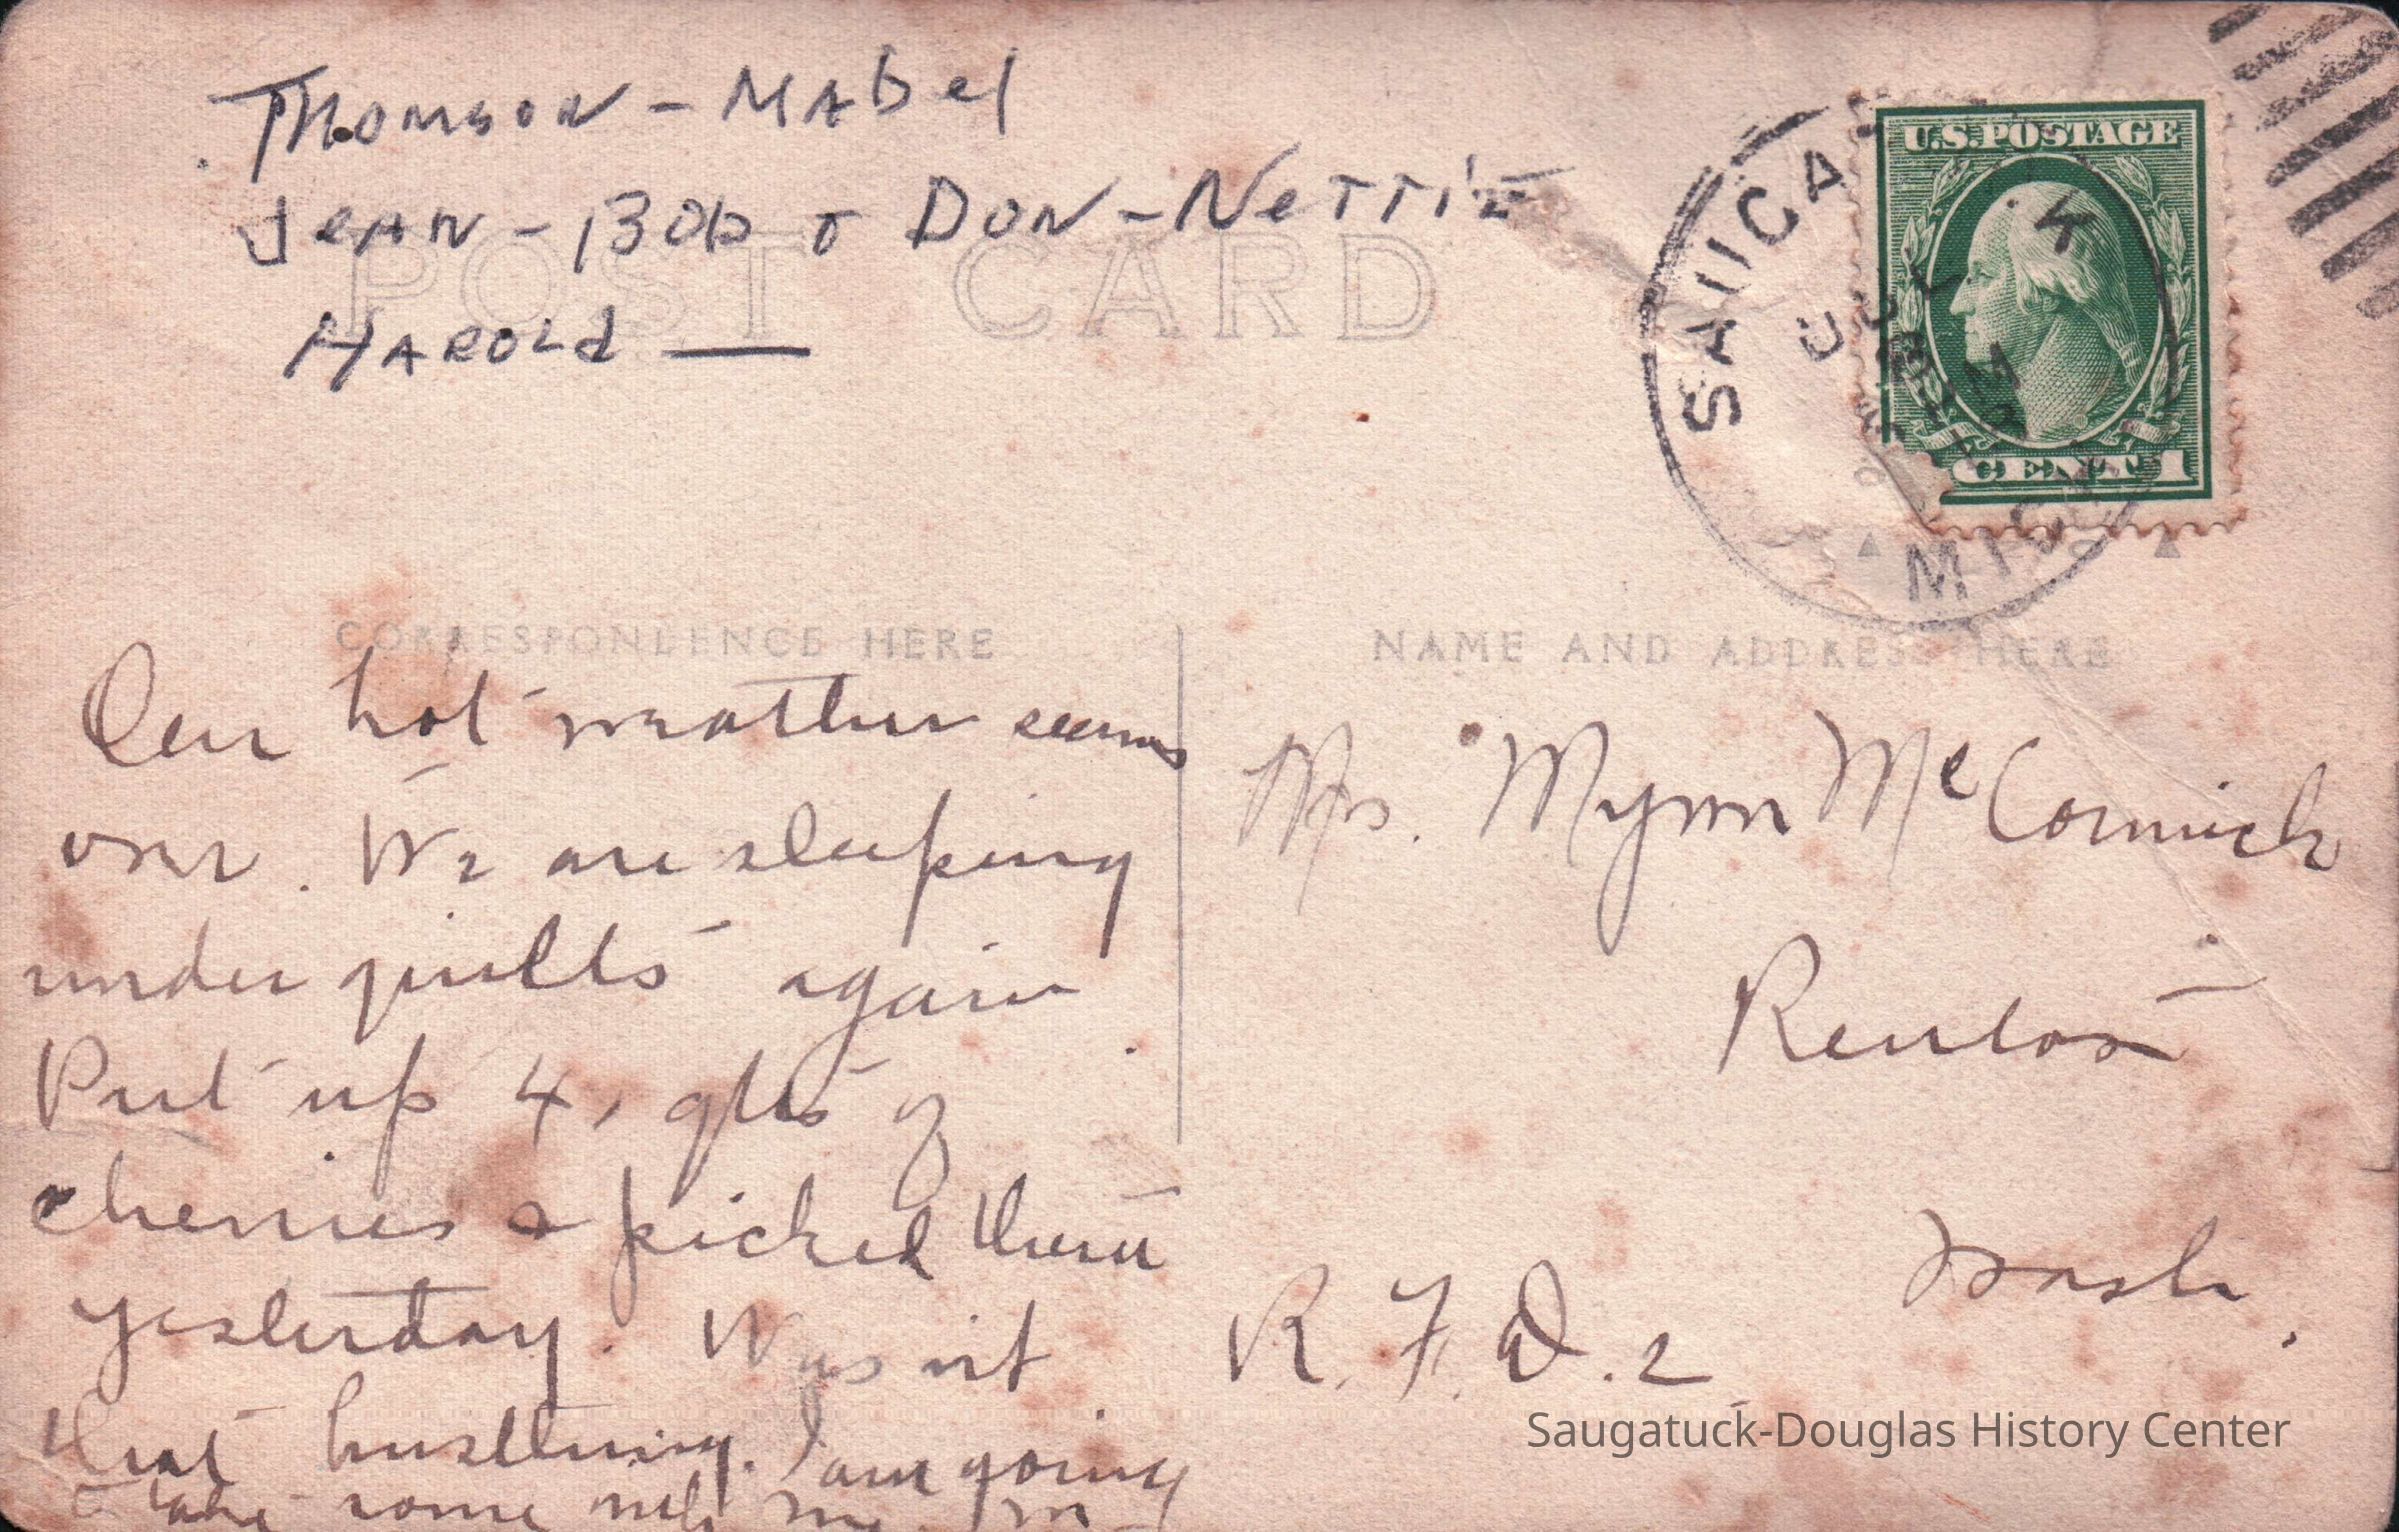 Thomson - Mabel
Jean - Bob + Don - Nettie
Harold —
POST CARD
U.S. POSTAGE
CENT 1
MICH
CORRESPONDENCE HERE
NAME AND ADDRESS HERE
Our hot weather seems
over. We are sleeping
under quilts again
Put up 4, qts of
cherries & picked them
yesterday. Was it
that hustling. I am going
take some with me. Im
Mrs. Mynn McCormick
Renton
Wash.
R.F.D. 2
Saugatuck-Douglas History Center